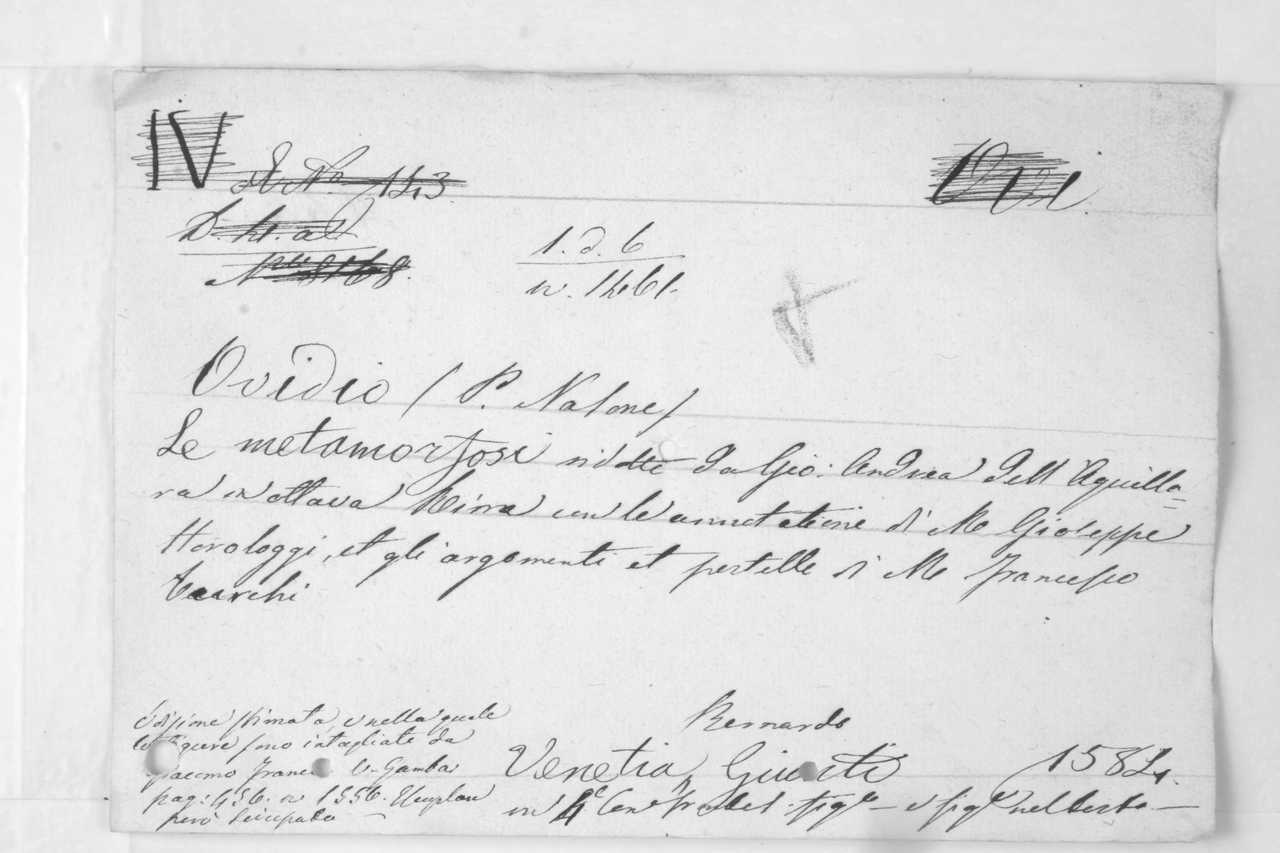 IV
N.º 143
Ovi
1. d. 6
n. 1461.
Ovidio (P. Nasone)
Le metamorfosi ridotte da Gio: Andrea dell'Aguilla=
ra in ottava Rima con le annotatione di M Gioseppe
Horologgi, et gli argomenti et postille di M Francesco
Turchi
Bernardo
Venetia, Giunti 1584.
in 4º Con frontesº figtº e figº nel testo
Edizione stimata e nella quale
le figure sono intagliate da
Giacomo Franco V. Gamba
pag: 436. n 1336.
però